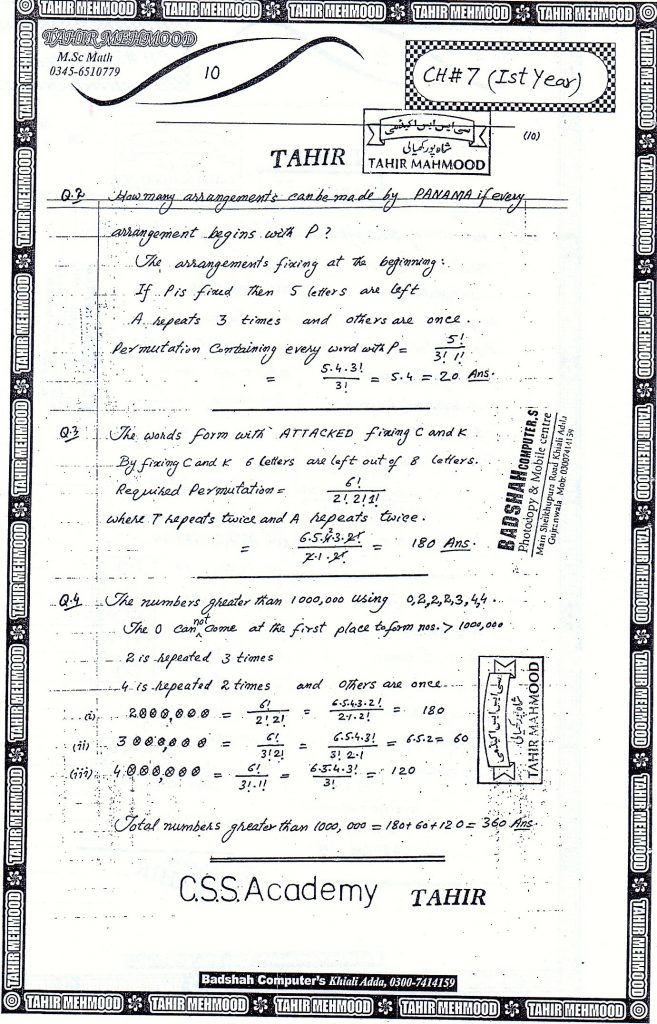 TAHIR MEHMOOD TAHIR MEHMOOD TAHIR MEHMOOD TAHIR MEHMOOD TAHIR MEHMOOD
TAHIR MEHMOOD
M.Sc Math
0345-6510779
10
CH#7 (Ist Year)
(10)
سی ایس ایس اکیڈمی
شاہ پور کھیالی
TAHIR MAHMOOD
TAHIR
Q.2 How many arrangements can be made by PANAMA if every
arrangement begins with P?
The arrangements fixing at the beginning:
If P is fixed then 5 letters are left
A repeats 3 times and others are once.
Permutation Containing every word with P = 5!/3! 1!
= 5.4.3!/3! = 5.4 = 20 Ans.
Q.3 The words form with ATTACKED fixing C and K
By fixing C and K 6 letters are left out of 8 letters.
Required Permutation = 6!/2! 2! 1!
where T repeats twice and A repeats twice.
= 6.5.4.3.2!/2.1.2! = 180 Ans.
BADSHAH COMPUTER,S
Photocopy & Mobile centre
Main Sheikhupura Road Khiali Adda
Gujranwala Mob: 03007414159
Q.4 The numbers greater than 1000,000 using 0,2,2,2,3,4,4.
The 0 can not come at the first place to form nos. > 1000,000
2 is repeated 3 times
4 is repeated 2 times and others are once
(i) 2⊗⊗⊗,⊗⊗⊗ = 6!/2! 2! = 6.5.4.3.2!/2.1.2! = 180
(ii) 3⊗⊗⊗,⊗⊗⊗ = 6!/3! 2! = 6.5.4.3!/3! 2.1 = 6.5.2 = 60
(iii) 4⊗⊗⊗,⊗⊗⊗ = 6!/3! 1! = 6.5.4.3!/3! = 120
سی ایس ایس اکیڈمی
شاہ پور کھیالی
TAHIR MAHMOOD
Total numbers greater than 1000,000 = 180+60+120 = 360 Ans.
C.S.S. Academy TAHIR
Badshah Computer's Khiali Adda, 0300-7414159
TAHIR MEHMOOD TAHIR MEHMOOD TAHIR MEHMOOD TAHIR MEHMOOD TAHIR MEHMOOD